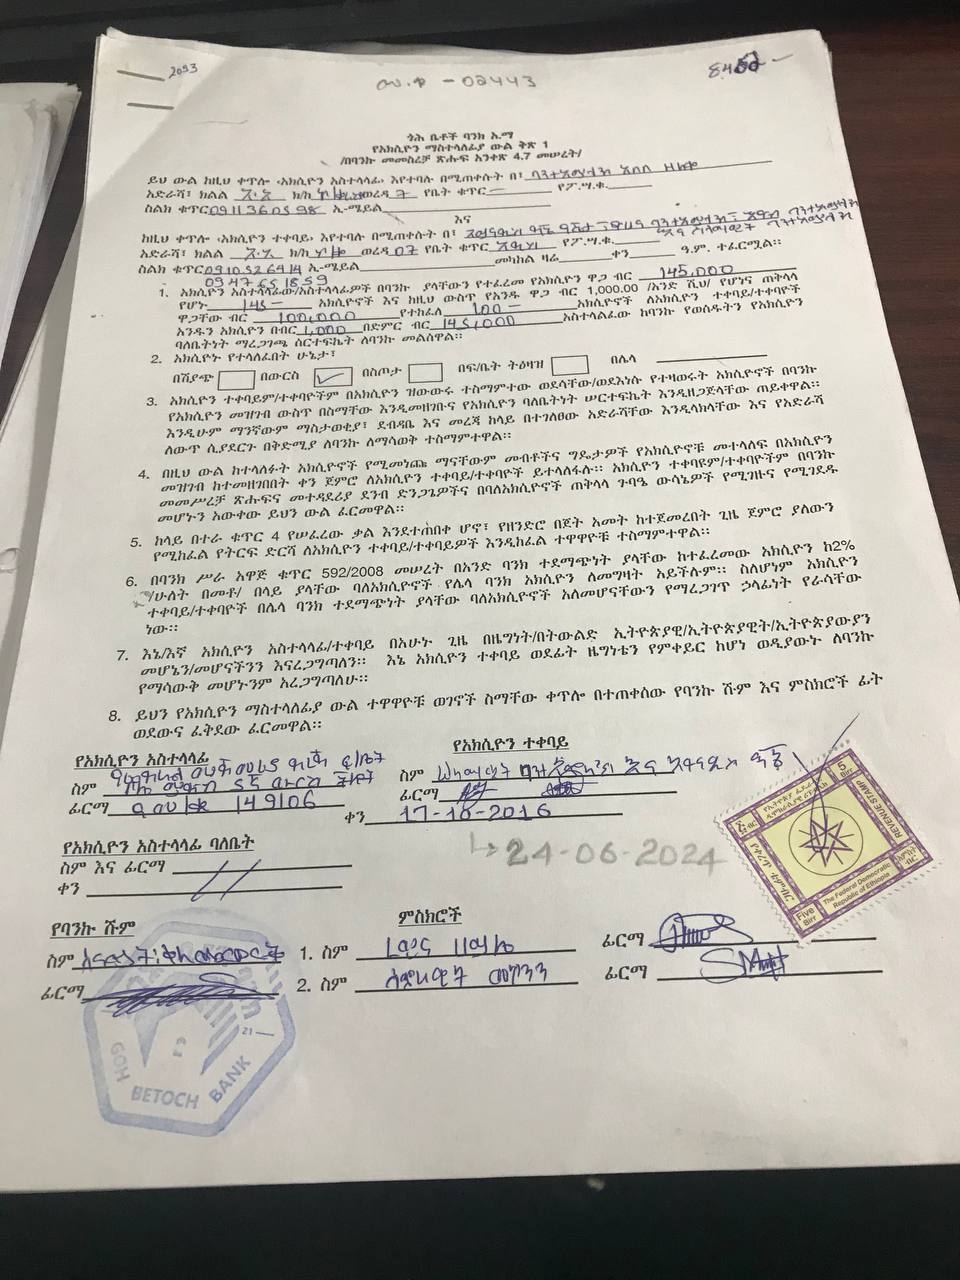 2093
ው.ቀ - 02443
ጎሕ ቤቶች ባንክ አ.ማ
የአክሲዮን ማስተላለፊያ ውል ቅጽ 1
/በባንኩ መመስረቻ ጽሑፍ አንቀጽ 4.7 መሠረት/
ይህ ውል ከዚህ ቀጥሎ ‹አክሲዮን አስተላላፊ› እየተባሉ በሚጠቀሱት በ፣
አድራሻ፣ ክልል አ.አ ክ/ከ ወረዳ 7 የቤት ቁጥር የፖ.ሣ.ቁ.
ስልክ ቁጥር 0911360598 ኢ-ሜይል
እና
ከዚህ ቀጥሎ ‹አክሲዮን ተቀባይ› እየተባሉ በሚጠቀሱት በ፣
አድራሻ፣ ክልል አ.አ ክ/ከ ወረዳ 07 የቤት ቁጥር የፖ.ሣ.ቁ.
ስልክ ቁጥር 0910526414 ኢ-ሜይል መካከል ዛሬ ቀን ዓ.ም. ተፈርሟል።
0947651859
1. አክሲዮን አስተላላፊው/አስተላላፊዎች በባንኩ ያላቸውን የተፈረመ የአክሲዮን ዋጋ ብር 145,000
የሆኑ 145 አክሲዮኖች እና ከዚህ ውስጥ የአንዱ ዋጋ ብር 1,000.00 /አንድ ሺህ/ የሆነና ጠቅላላ
ዋጋቸው ብር 100,000 የተከፈለ 100 አክሲዮኖች ለአክሲዮን ተቀባይ/ተቀባዮች
አንዱን አክሲዮን በብር 1,000 በድምር ብር 145,000 አስተላልፈው ከባንኩ የወሰዱትን የአክሲዮን
ባለቤትነት ማረጋገጫ ሰርተፍኬት ለባንኩ መልሰዋል።
2. አክሲዮኑ የተላለፈበት ሁኔታ፣
በሽያጭ በውርስ ✓ በስጦታ በፍ/ቤት ትዕዛዝ በሌላ
3. አክሲዮን ተቀባይም/ተቀባዮችም በአክሲዮን ዝውውሩ ተስማምተው ወደላቸው/ወደእነሱ የተዛወሩት አክሲዮኖች በባንኩ
የአክሲዮን መዝገብ ውስጥ በስማቸው እንዲመዘገቡና የአክሲዮን ባለቤትነት ሠርተፍኬት እንዲዘጋጅላቸው ጠይቀዋል።
እንዲሁም ማንኛውም ማስታወቂያ፣ ደብዳቤ እና መረጃ ከላይ በተገለፀው አድራሻቸው እንዲላክላቸው እና የአድራሻ
ለውጥ ሲያደርጉ በቅድሚያ ለባንኩ ለማሳወቅ ተስማምተዋል።
4. በዚህ ውል ከተላለፉት አክሲዮኖች የሚመነጩ ማናቸውም መብቶችና ግዴታዎች የአክሲዮኖቹ መተላለፍ በአክሲዮን
መዝገብ ከተመዘገበበት ቀን ጀምሮ ለአክሲዮን ተቀባይ/ተቀባዮች ይተላለፋሉ። አክሲዮን ተቀባዩም/ተቀባዮችም በባንኩ
መመሥረቻ ጽሑፍና መተዳደሪያ ደንብ ድንጋጌዎችና በባለአክሲዮኖች ጠቅላላ ጉባዔ ውሳኔዎች የሚገዙና የሚገደዱ
መሆኑን አውቀው ይህን ውል ፈርመዋል።
5. ከላይ በተራ ቁጥር 4 የሠፈረው ቃል እንደተጠበቀ ሆኖ፣ የዘንድሮ በጀት አመት ከተጀመረበት ጊዜ ጀምሮ ያለውን
የሚከፈል የትርፍ ድርሻ ለአክሲዮን ተቀባይ/ተቀባይዎች እንዲከፈል ተዋዋዮቹ ተስማምተዋል።
6. በባንክ ሥራ አዋጅ ቁጥር 592/2008 መሠረት በአንድ ባንክ ተደማጭነት ያላቸው ከተፈረመው አክሲዮን ከ2%
/ሁለት በመቶ/ በላይ ያላቸው ባለአክሲዮኖች የሌላ ባንክ አክሲዮን ለመግዛት አይችሉም። ስለሆነም አክሲዮን
ተቀባይ/ተቀባዮች በሌላ ባንክ ተደማጭነት ያላቸው ባለአክሲዮኖች አለመሆናቸውን የማረጋገጥ ኃላፊነት የራሳቸው
ነው።
7. እኔ/እኛ አክሲዮን አስተላላፊ/ተቀባይ በአሁኑ ጊዜ በዜግነት/በትውልድ ኢትዮጵያዊ/ኢትዮጵያዊት/ኢትዮጵያውያን
መሆኔን/መሆናችንን እናረጋግጣለን። እኔ አክሲዮን ተቀባይ ወደፊት ዜግነቴን የምቀይር ከሆነ ወዲያውኑ ለባንኩ
የማሳውቅ መሆኑንም አረጋግጣለሁ።
8. ይህን የአክሲዮን ማስተላለፊያ ውል ተዋዋዮቹ ወገኖች ስማቸው ቀጥሎ በተጠቀሰው የባንኩ ሹም እና ምስክሮች ፊት
ወደውና ፈቅደው ፈርመዋል።
የአክሲዮን አስተላላፊ
የአክሲዮን ተቀባይ
ስም
ስም
ፊርማ 149106
ፊርማ
ቀን 17-10-2016
24-06-2024
የአክሲዮን አስተላላፊ ባለቤት
ስም እና ፊርማ
ቀን
5 Birr
REVENUE STAMP
Five Birr
The Federal Democratic Republic of Ethiopia
የባንኩ ሹም
ምስክሮች
ስም
1. ስም
ፊርማ
ፊርማ
2. ስም
ፊርማ
GOH BETOCH BANK